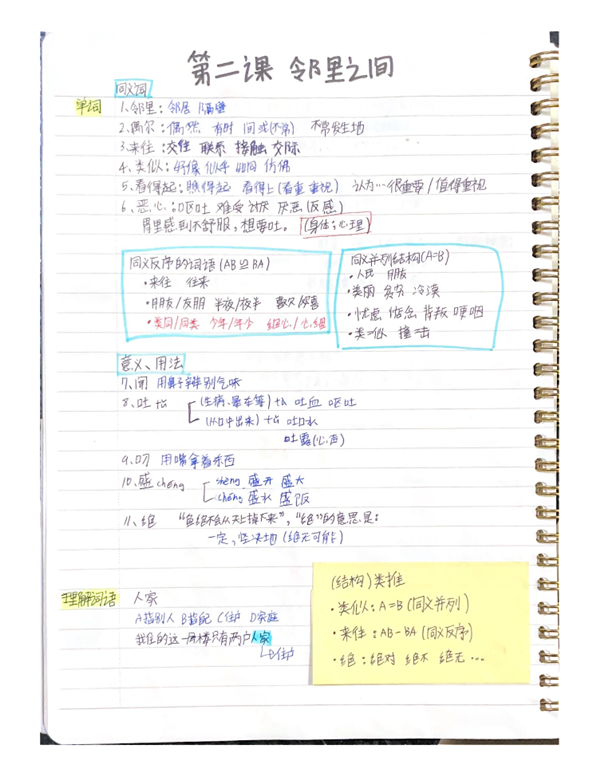 第二课 邻里之间
同义词
单词
1、邻里：邻居 隔壁
2、偶尔：偶然 有时 间或(不常) 不常发生地
3、来往：交往 联系 接触 交际
4、类似：好像 似乎 如同 仿佛
5、看得起：瞧得起 看得上(看重 重视) 认为…很重要/值得重视
6、恶心：呕吐 难受 讨厌 厌恶(反感)
胃里感到不舒服，想要吐。 (身体；心理)
同义反序的词语(AB ≌ BA)
• 来往 往来
• 朋友/友朋 半夜/夜半
• 类同/同类
同义并列结构(A=B)
• 人民 朋友
• 类同 贫穷 冷漠
• 忧虑 惦念 背叛 哽咽
• 类=似 撞=击
意义、用法
7、闻 用鼻子辨别气味
8、吐 tù (生病、晕车等) tù 吐血 呕吐
(从口中出来) tǔ 吐口水
吐露(心声)
9、叼 用嘴拿着东西
10、盛 chéng shèng 盛开 盛大
chéng 盛水 盛饭
11、绝 “鱼绝不会从天上掉下来”，“绝”的意思是：
一定，坚决地 (绝无可能)
理解词语 人家
A指别人 B婚配 C住户 D家庭
我住的这一层楼只有两户人家
住户
(结构) 类推
• 类似：A=B (同义并列)
• 来往：AB-BA (同义反序)
• 绝：绝对 绝不 绝无 …